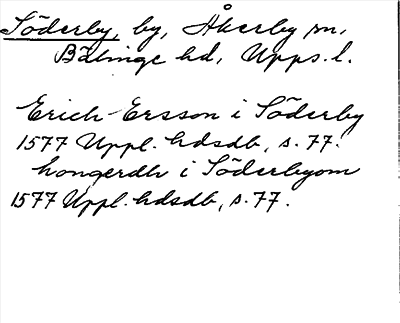 Söderby, by, Åkerby sn,
Bälinge hd, Upps. l.
Erich Ersson i Söderby
1577 Uppl. hdsdb, s. 77.
hongerdh i Söderbyom
1577 Uppl. hdsdb, s. 77.